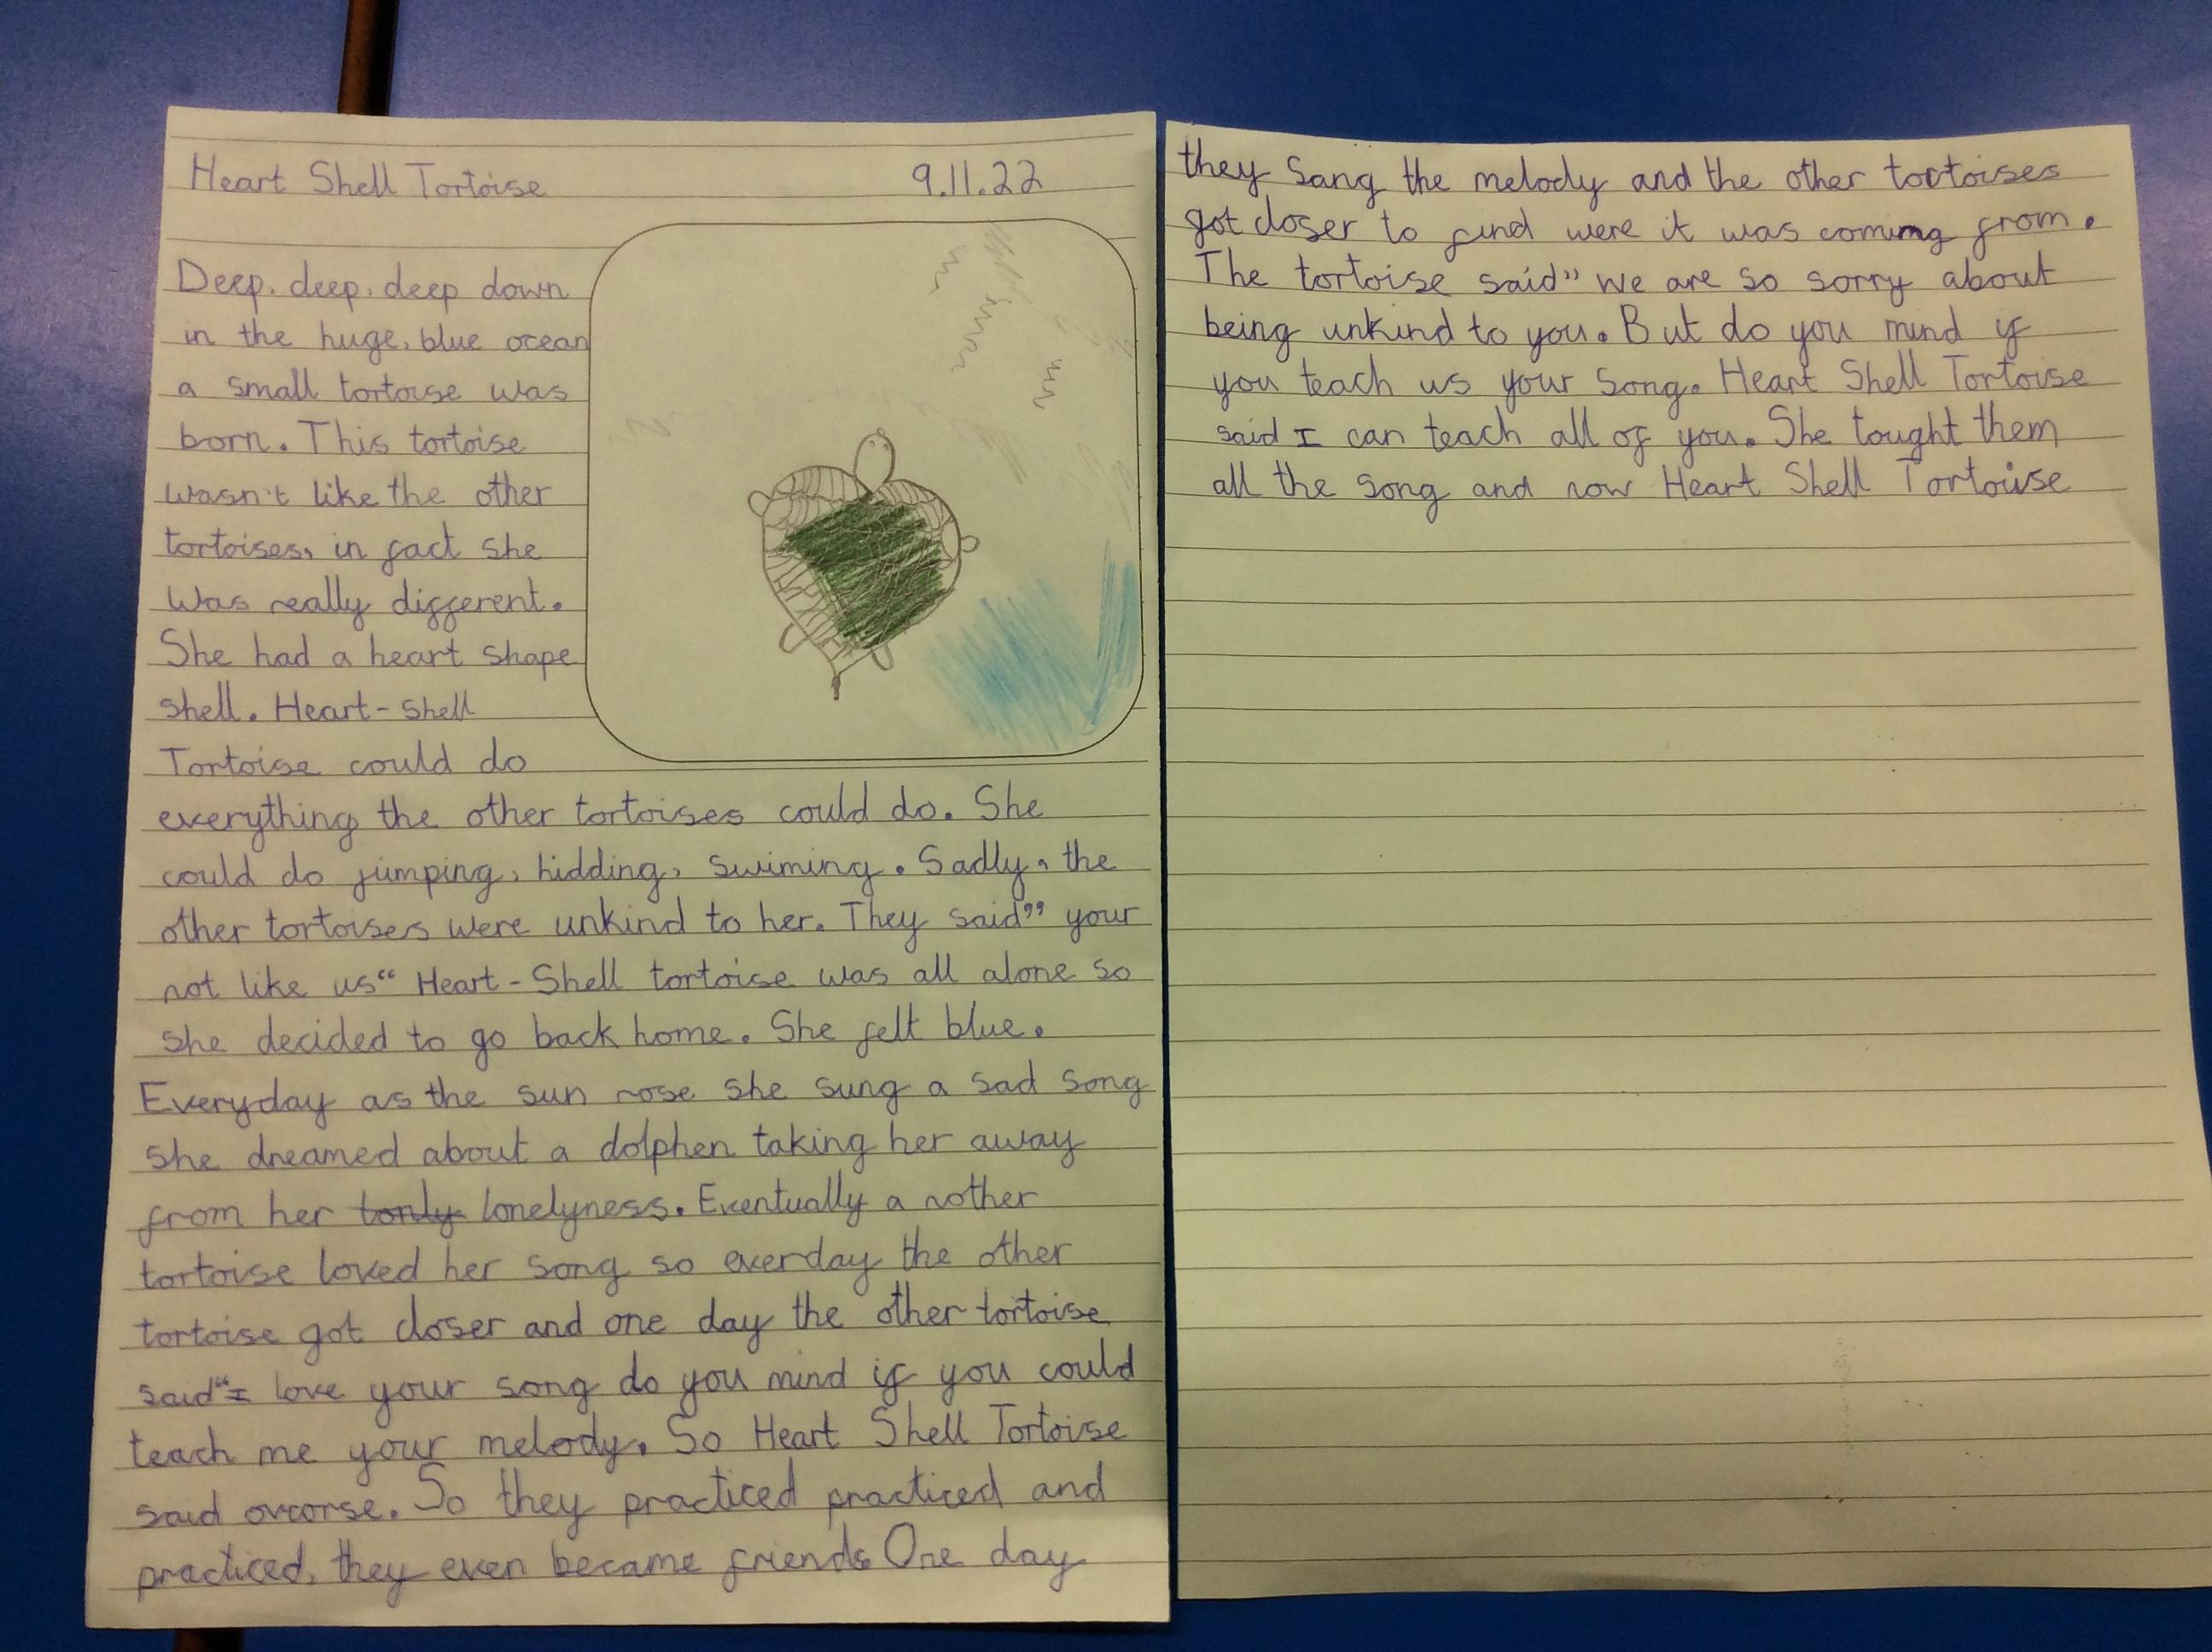 Heart Shell Tortoise 9.11.22
Deep, deep, deep down
in the huge, blue ocean
a small tortoise was
born. This tortoise
wasn't like the other
tortoises, in fact she
was really different.
She had a heart shape
shell. Heart-shell
Tortoise could do
everything the other tortoises could do. She
could do jumping, hidding, swiming. Sadly, the
other tortoises were unkind to her. They said” your
not like us“ Heart-Shell tortoise was all alone so
she decided to go back home. She felt blue.
Everyday as the sun rose she sung a sad song
she dreamed about a dolphen taking her away
from her tonly lonelyness. Eventually a nother
tortoise loved her song so everday the other
tortoise got closer and one day the other tortoise
said“I love your song do you mind if you could
teach me your melody. So Heart Shell Tortoise
said ovcorse. So they practiced practiced and
practiced, they even became friends One day
they sang the melody and the other tortoises
got closer to find were it was coming from.
The tortoise said” we are so sorry about
being unkind to you. But do you mind if
you teach us your song. Heart Shell Tortoise
said I can teach all of you. She tought them
all the song and now Heart Shell Tortoise